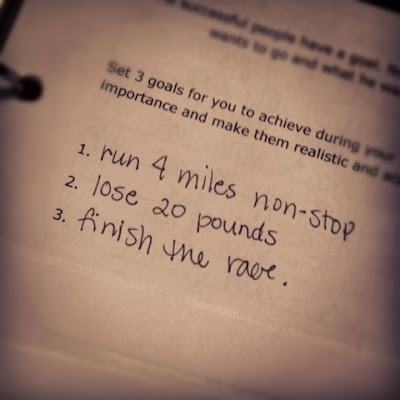 successful people have a goal,
wants to go and what he
Set 3 goals for you to achieve during your
importance and make them realistic and
1. run 4 miles non-stop
2. lose 20 pounds
3. finish the race.